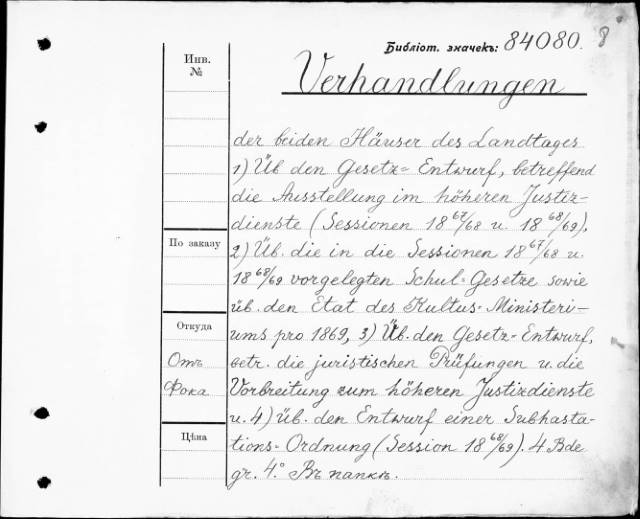 Библіот. значекъ: 84080. 8
Инв.
№
Verhandlungen
der beiden Häuser des Landtages
1) Üb den Gesetz=Entwurf, betreffend
die Ausstellung im höheren Justiz-
dienste (Sessionen 18 67/68 u. 18 68/69),
По заказу
2) Üb. die in die Sessionen 18 67/68 u.
18 68/69 vorgelegten Schul=Gesetze sowie
üb. den Etat des Kultus=Ministeri-
Откуда
ums pro 1869, 3) Üb. den Gesetz=Entwurf,
Отъ
betr. die juristischen Prüfungen u. die
Фока
Vorbreitung zum höheren Justizdienste
u. 4) üb. den Entwurf einer Subhasta-
Цѣна
tions=Ordnung (Session 18 68/69). 4 Bde
gr. 4.° Въ папкѣ.